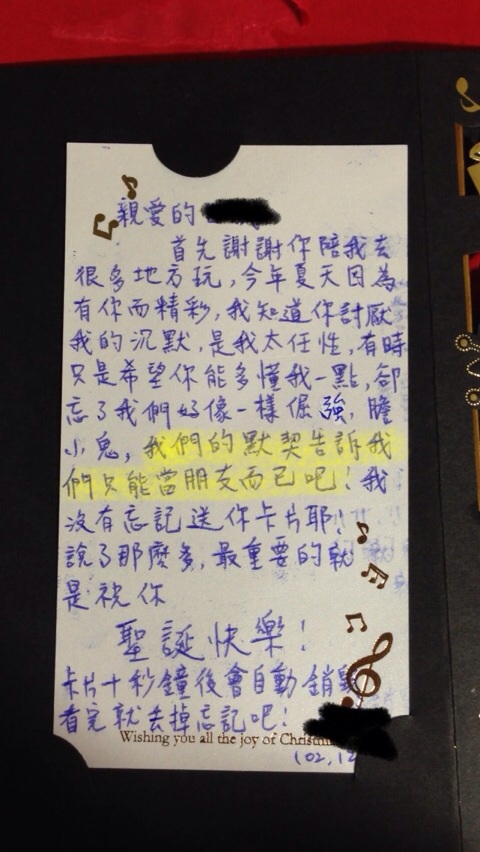 親愛的
首先謝謝你陪我去
很多地方玩，今年夏天因為
有你而精彩，我知道你討厭
我的沉默，是我太任性，有時
只是希望你能多懂我一點，卻
忘了我們好像一樣倔強，膽
小鬼，我們的默契告訴我
們只能當朋友而已吧！我
沒有忘記送你卡片耶！
說了那麼多，最重要的就
是祝你
聖誕快樂！
卡片十秒鐘後會自動銷毀
看完就去掉忘記吧！
Wishing you all the joy of
102.12